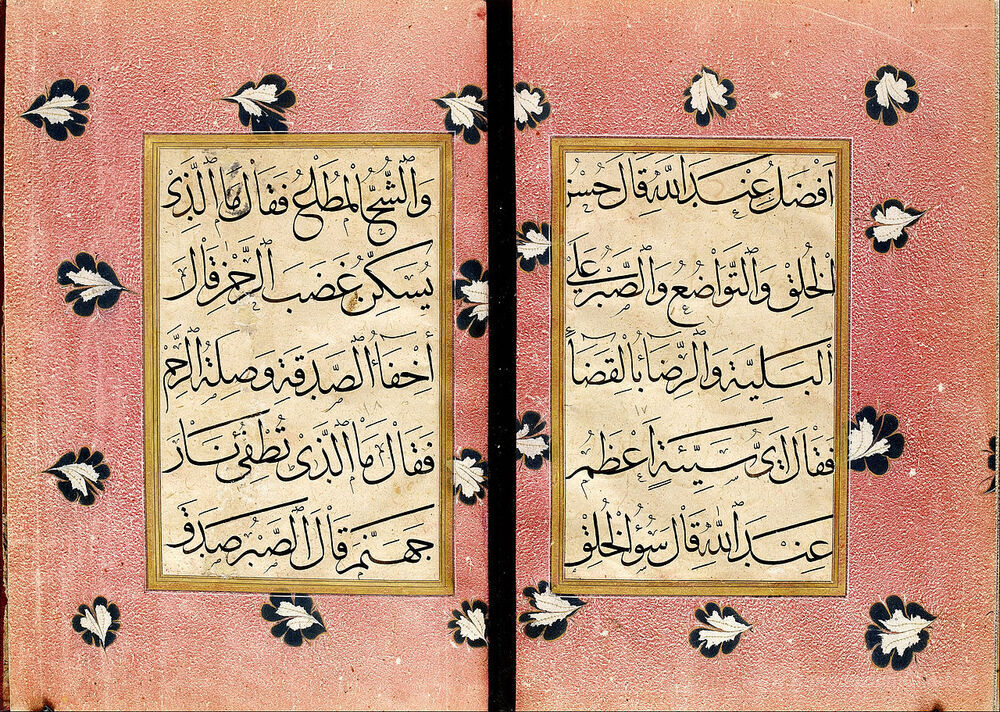 اَفْضَلُ عِنْدَ اللّٰهِ قَالَ حُسْنُ
الْخُلُقِ وَالتَّوَاضُعُ وَالصَّبْرُ عَلَى
الْبَلِيَّةِ وَالرِّضَاءُ بِالْقَضَاءِ
فَقَالَ اَيُّ سَيِّئَةٍ اَعْظَمُ
عِنْدَ اللّٰهِ قَالَ سُوْءُ الْخُلُقِ
وَالشُّحُّ الْمُطَاعُ فَقَالَ مَا الَّذِى
يُسَكِّنُ غَضَبَ الرَّحْمٰنِ قَالَ
اَخْفَاءُ الصَّدَقَةِ وَصِلَةُ الرَّحِمِ
فَقَالَ مَا الَّذِى تُطْفِئُ نَارَ
جَهَنَّمَ قَالَ الصَّبْرُ صَدَقَ